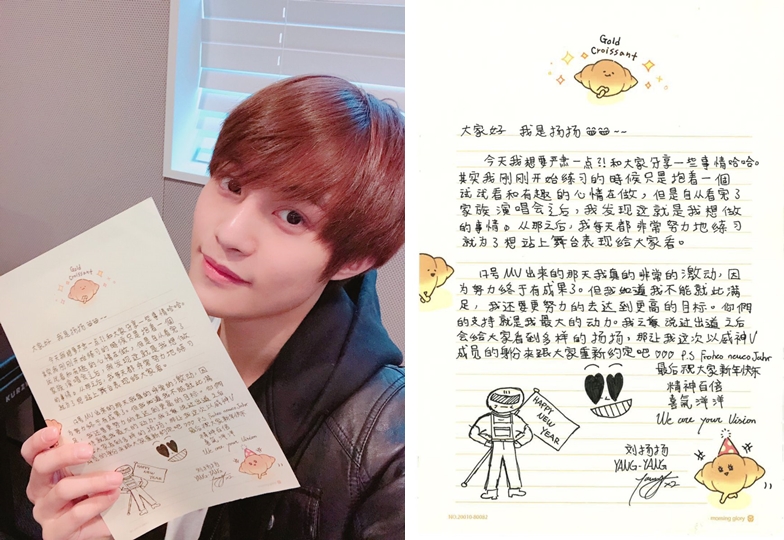 Gold
Croissant
大家好 我是扬扬
今天我想要严肃一点?!和大家分享一些事情哈哈。
其实我刚刚开始练习的時候只是抱着一個
試試看和有趣的心情在做,但是自从看完了
家族演唱会之后,我发现这就是我想做
的事情。从那之后,我每天都非常努力地练习
就为了想站上舞台表现给大家看。
17号MV出来的那天我真的非常的激动,因
为努力终于有成果了。但我知道我不能就此满
足,我还要更努力的去达到更高的目标。你們
的支持就是我最大的动力。我之前说过出道之后
会给大家看到多样的扬扬,那让我这次以威神V
成员的身份来跟大家重新约定吧 P.S. Frohes neues Jahr
最后祝大家新年快乐
精神百倍
喜氣洋洋
We are your Vision
HAPPY
NEW
YEAR
刘扬扬
YANG-YANG
NO.29010-86082
morning glory